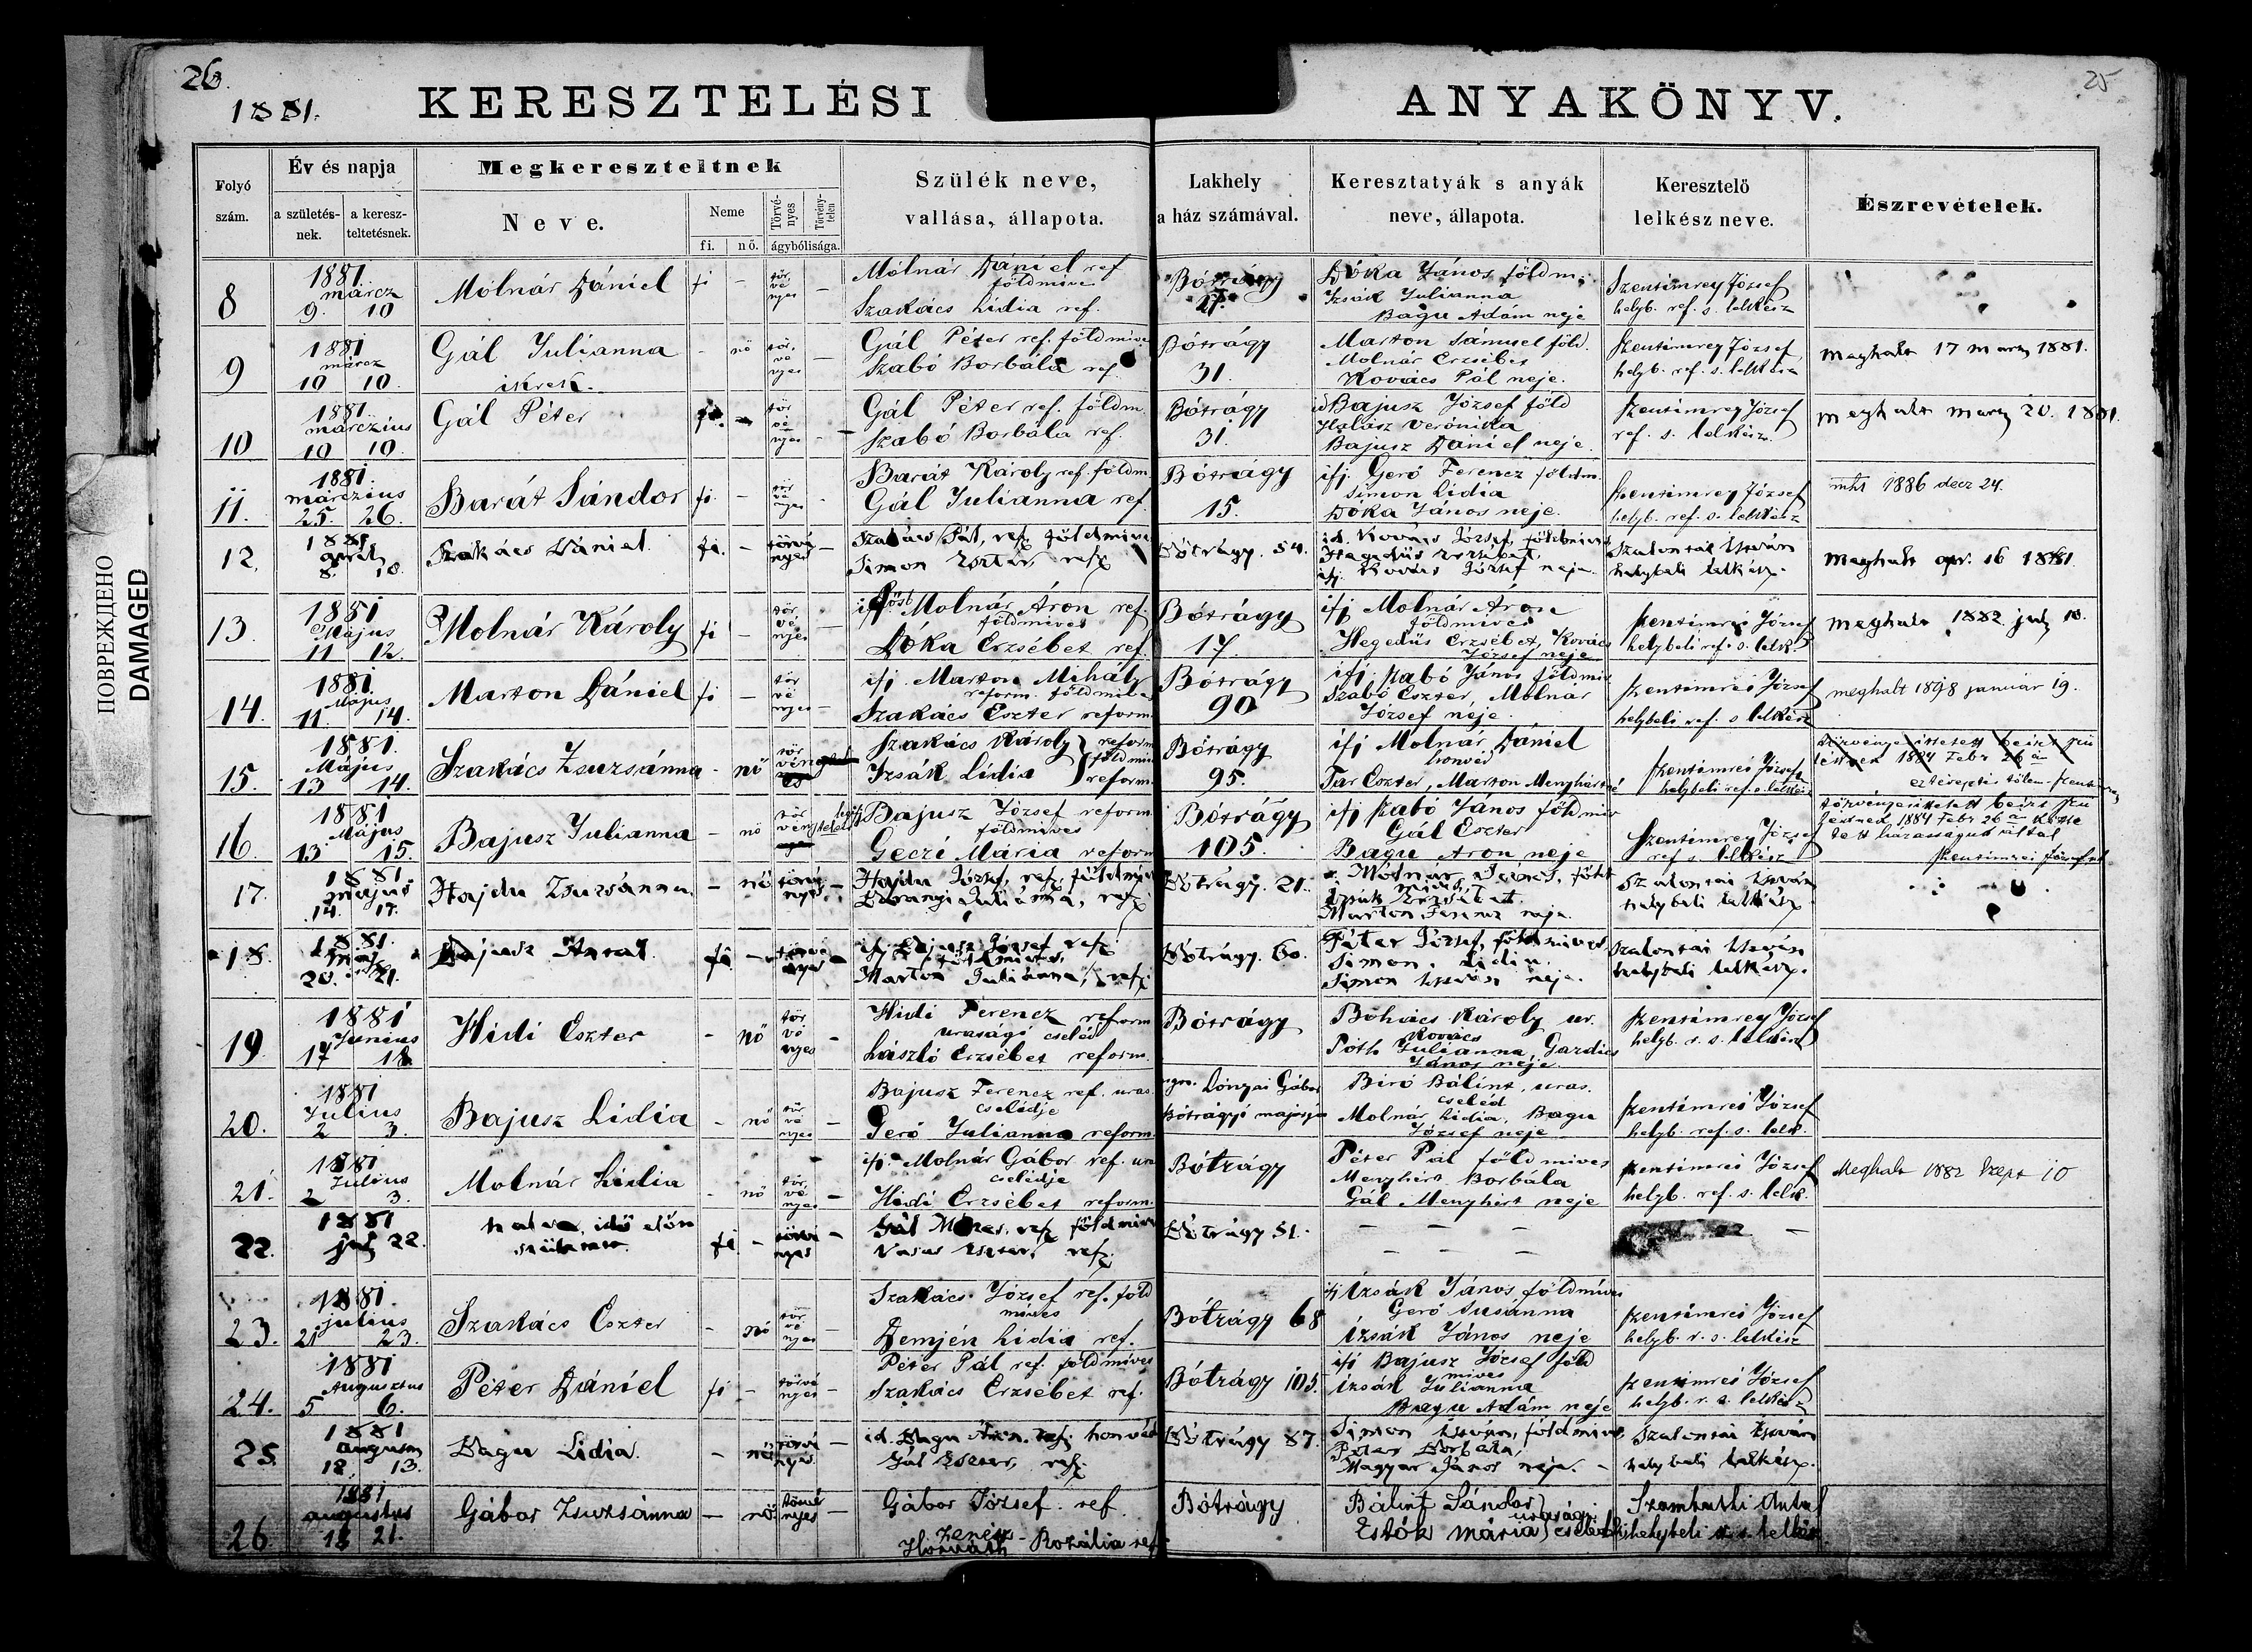 26.
25
1881.
KERESZTELÉSI ANYAKÖNYV.
ПОВРЕЖДЕНО
DAMAGED
Folyó szám.
Év és napja
a születés-nek.
a keresz-teltetésnek.
Megkereszteltnek
Neve.
Neme
fi.
nő.
Törvé-nyes
Törvény-telen
ágybólisága.
Szülék neve,
vallása, állapota.
Lakhely
a ház számával.
Keresztatyák s anyák
neve, állapota.
Keresztelő
lelkész neve.
Észrevételek.
8
1881.
márcz
9. 10
Molnár Dániel
fi -
tör vé nyes -
Molnár Dániel ref
földmíves
Szakács Lidia ref.
Bótrágy
27.
Dóka János földm.
Izsák Julianna
Bagu Adám neje
Szentimrey József
helyb. ref. s. lelkész
9
1881
márcz
10 10.
Gál Julianna
ikrek.
- nő
tör vé nyes -
Gál Péter ref. földmíve
Szabó Borbála ref.
Bótrágy
31.
Marton Sámuel föld.
Molnár Erzsébet
Kovács Pál neje.
Szentimrey József
helyb. ref. s. lelkész
meghalt 17 marz 1881.
10
1881
márczius
10 10.
Gál Péter
fi. -
tör vé nyes -
Gál Péter ref. földm.
Szabó Borbála ref.
Bótrágy
31.
id Bajusz József föld
Halász Verónika
Bajusz Dániel neje.
Szentimrey József
ref. s. lelkész
meghalt marz 20. 1881.
11.
1881.
márczius
25. 26.
Barát Sándor
fi. -
tör vé nyes
Barát Károly ref. földm
Gál Julianna ref
Bótrágy
15.
ifj. Gerő Ferencz földm.
Simon Lidia
Dóka János neje.
Szentimrey József
helyb. ref. s. lelkész
mht 1886 decz 24.
12.
1881
april
8. 10.
Szakács Dániel.
fi. -
törvé nyes -
Szakács Pál, ref. földmíve
Simon Eszter, ref.
Bótrágy. 54.
id. Kovács József, földmíves
Hegedüs Erzsébet,
ifj. Kovács József neje.
Szalontai István
helybeli lelkész.
meghalt apr. 16 1881.
13.
1881
Május
11 12.
Molnár Károly
fi -
tör vé nyes -
Molnár Áron ref.
földmíves
Dóka Erzsébet ref.
Bótrágy
17.
ifj Molnár Áron
földmíves
Hegedüs Erzsébet, Kovács
József neje
Szentimrei József
helybeli ref. s. lelk.
meghalt 1882. july 10.
14.
1881
Május
11. 14.
Marton Dániel
fi -
tör vé nyes -
ifj. Marton Mihály
reform. földmíve
Szakács Eszter reform.
Bótrágy
90
ifj. Szabó János földmív
Szabó Eszter, Molnár
József neje.
Szentimrei József
helybeli ref. s lelkész
meghalt 1898 január 19.
15.
1881.
Május
13 14.
Szakács Zsuzsánna
- nő
Szakács Károly } reform
földmív
Izsák Lídia } reform.
Bótrágy
95.
ifj Molnár Dániel
honvéd
Tar Eszter, Marton Menyhértné
Szentimrei József
helybeli ref. s. lelkész
16.
1881
Május
13 15.
Bajusz Julianna
- nő
Bajusz József reform.
földmíves
Geczi Mária reform
Bótrágy
105.
ifj Szabó János földmív
Gál Eszter
Bagu Áron neje
Szentimrey József
ref s. lelkész
törvényesittetett beirt szü
1884 Febr 26 án
tett házasságuk által
Szentimrei József
17.
1881.
május
14. 17.
Hajdu Zsuzsánna.
- nő
törvé nyes. -
Hajdu József, ref. földmíve
Baranyi Juliánna, ref.
Bótrágy. 21.
Molnár János, föld
míves,
Izsák Erzsébet.
Marton Ferencz neje.
Szalontai István
helybeli lelkész.
18.
1881.
máj
20. 21.
Bajusz Antal.
fi. -
törvé nyes -
ifj. Bajusz József ref.
földmíves,
Marton Juliánna, ref.
Bótrágy. 60.
Péter József, földmíves
Simon Lidia.
Simon István neje.
Szalontai István
helybeli lelkész.
19.
1881
Június
17 18
Hidi Eszter
- nő
tör vé nyes -
Hidi Ferencz reform
urasági cseléd
László Erzsébet reform.
Bótrágy
Böhács Károly ur.
Kovács
Tóth Julianna, Gardics
János neje
Szentimrey József
helyb. r. s. lelkész
20.
1881
Július
2 3.
Bajusz Lidia
- nő
tör vé nyes -
Bajusz Ferencz ref. uras.
cselédje
Gerő Julianna reform.
Lónyai Gábor
bótrágyi majorja
Biró Bálint, uras.
cseléd
Molnár Lidia, Bagu
József neje
Szentimrei József
helyb. ref. s. lelk.
21.
1881
Július
2 3.
Molnár Lidia
- nő
tör vé nyes -
ifj. Molnár Gábor ref. ura
cselédje
Hidi Erzsébet reform.
Bótrágy
Péter Pál földmíves
Menyhért Borbála
Gál Menyhért neje
Szentimrei József
helyb. ref. s. lelk.
Meghalt 1882 Szept 10
22.
1881
jul 22.
idő előtt
fi -
törvé nyes -
Gál Mózes, ref. földmíve
Vasas Eszter, ref.
Bótrágy 51.
23.
1881.
július
21 23.
Szakács Eszter
- nő
tör vé nyes -
Szakács József ref. föld
míves
Demjén Lidia ref.
Bótrágy 68
ifj Izsák János földmíves
Gerő Susánna
Izsák János neje
Szentimrei József
helyb. r. s. lelkész
24.
1881
Augusztus
5 6.
Péter Dániel
fi -
törvé nyes -
Péter Pál ref. földmíves
Szakács Erzsébet ref.
Bótrágy 105.
ifj Bajusz József föld
míves
Izsák Julianna
Bagu Adám neje
Szentimrei József
helyb. r. s. lelkész
25.
1881
augusz
12. 13.
Bagu Lidia.
- nő
törvé nyes -
id. Bagu Áron. ref. honvéd
Gál Eszter, ref.
Bótrágy 87.
Simon István, földmíves
Péter Borbála,
Magyar János neje.
Szalontai István
helybeli lelkész.
26.
1881
augustus
18 21.
Gábor Zsuzsánna
- nő
törvé nyes -
Gábor József. ref.
Horváth Rozália ref
Bótrágy
Bálint Sándor
urasági
Estók Mária cselédek
Szombathi Antal
helybeli s. lelkész